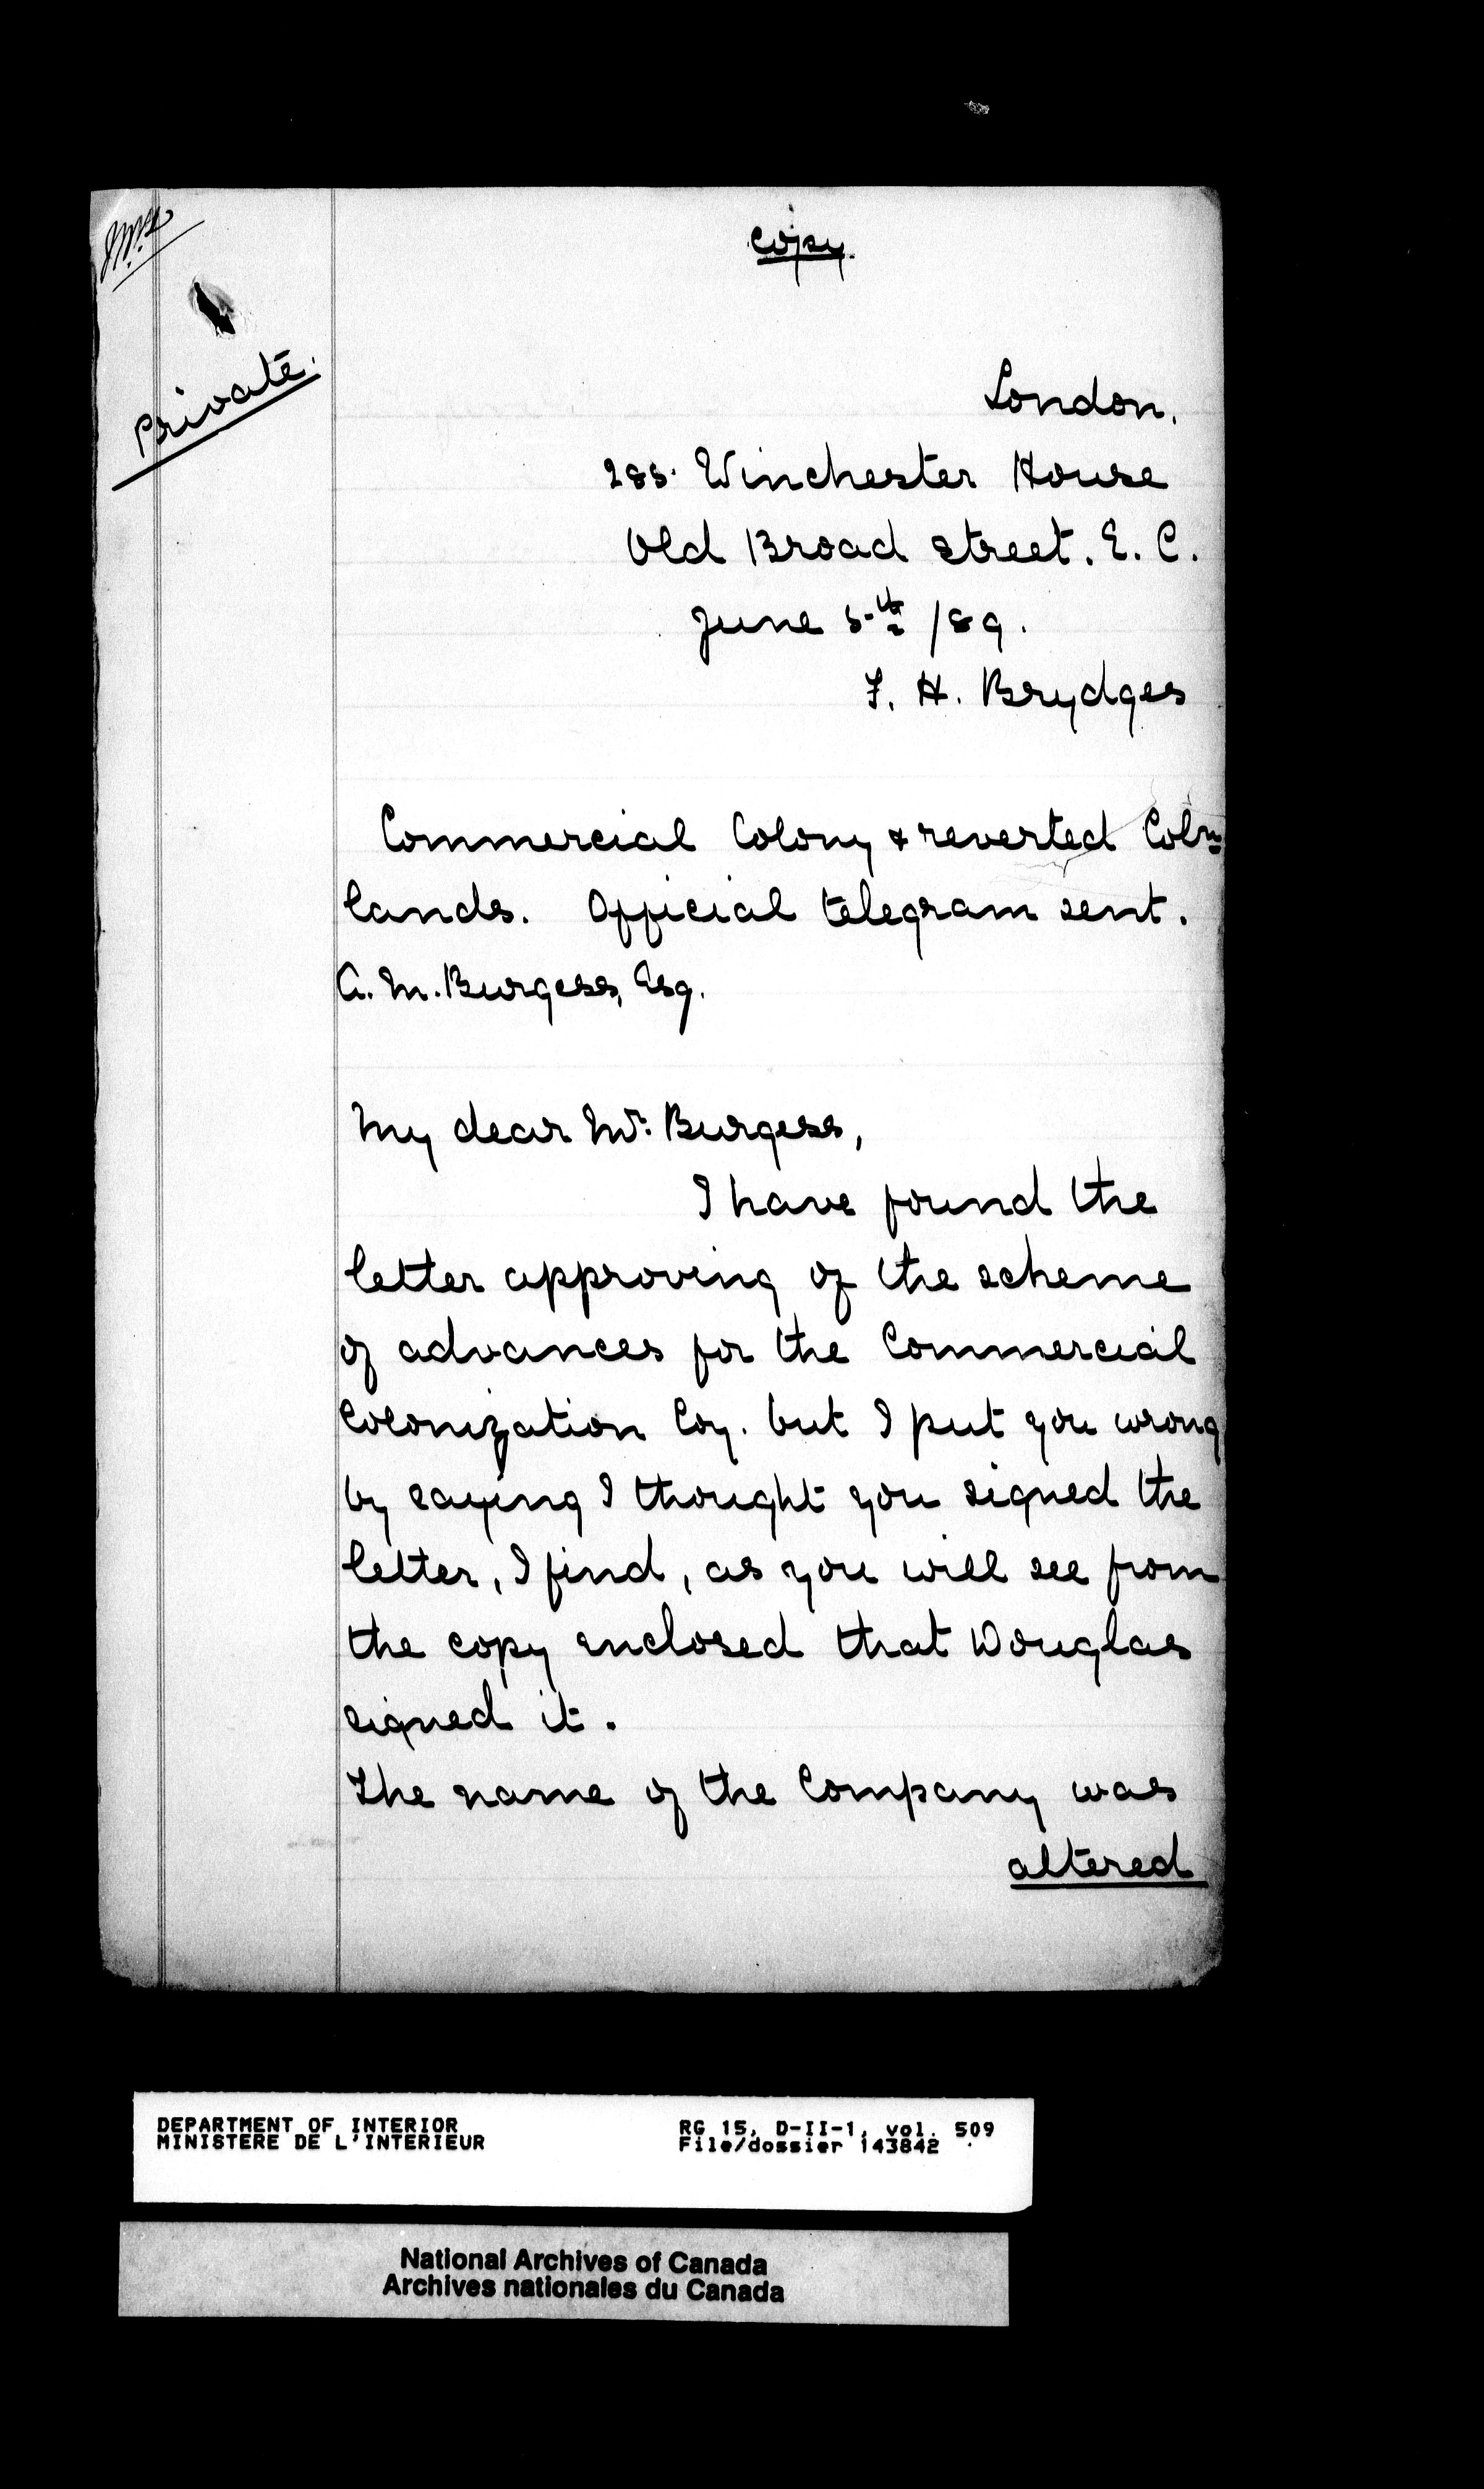 Copy.
Private.
London.
285. Winchester House
Old Broad Street. E. C.
June 5th /89.
F. H. Brydges
Commercial Colony & reverted Coln
lands. Official telegram sent.
A. M. Burgess, Esq.
My dear Mr. Burgess,
I have found the
letter approving of the scheme
of advances for the Commercial
Colonization Coy. but I put you wrong
by saying I thought you signed the
letter, I find, as you will see from
the copy enclosed that Douglas
signed it.
The name of the Company was
altered
DEPARTMENT OF INTERIOR
MINISTERE DE L'INTERIEUR
RG 15, D-II-1, vol. 509
File/dossier 143842
National Archives of Canada
Archives nationales du Canada